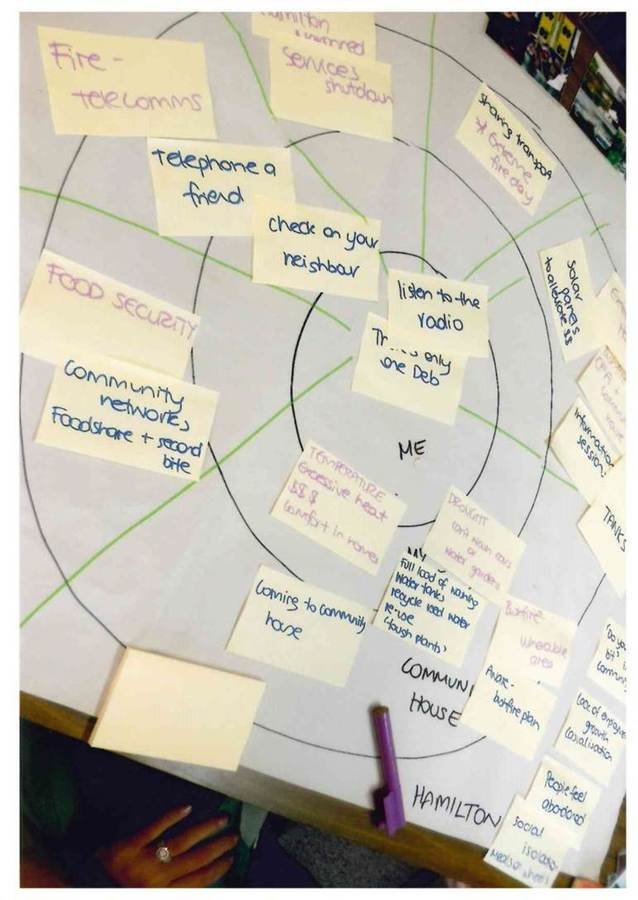 Hamilton
Fire -
telecomms
services
shutdown
sharing transport
* Extreme
fire day
Telephone a
friend
check on your
neighbour
listen to the
radio
only
one Deb
solar
panels
to alleviate $$
FOOD SECURITY
Community
networks
Foodshare + second
bite
ME
Information
session
TANKS
TEMPERATURE
Excessive heat
$$$
Comfort in homes
DROUGHT
can't wash cars
or
water gardens
MY
Full load of washing
Water tanks
recycle used water
re-use
Coming to community
house
COMMUNI
HOUSE
Bushfire
vulnerable
area
bushfire plan
Do you
bit
community
Lack of
growth
People feel
abandoned
HAMILTON
Social
isolation
Meals on wheels